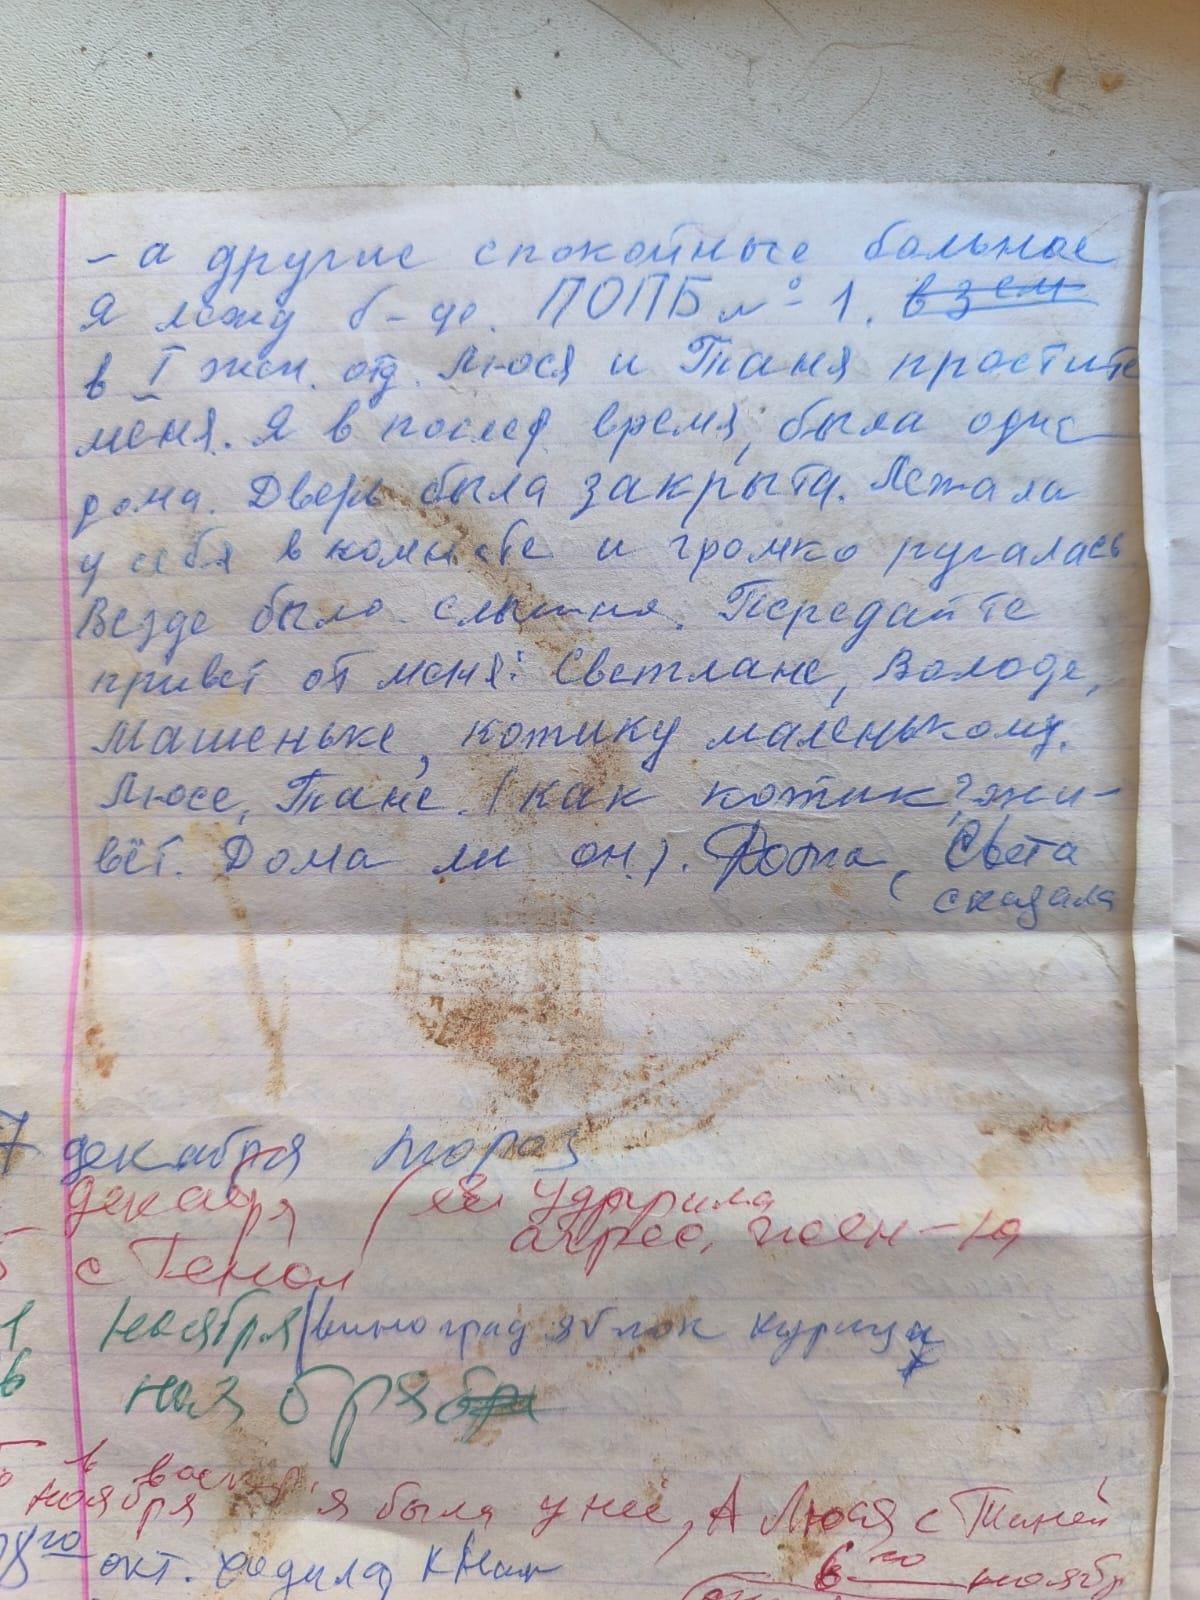 - а другие спокойные больные
Я лежу б-це. ПОПБ № 1. в 3 ем
в I жен. отд. Люся и Таня простите
меня. Я в послед время, была одна
дома. Дверь была закрыта. Лежала
у себя в комнате и громко ругалась
Везде было слышна. Передайте
привет от меня: Светлане, Володе,
Машеньке, котику маленькому.
Люсе, Тане. (как котик? жи-
вёт. Дома ли он.). Рота, Света
сказала
7 декабря
декабря (её ударила
с Геной
1 ноября (виноград яблок курица
6 ноября
в воскр.
ноября я была у неё, А Люся с Таней
28го окт. ходила к
6го ноябр